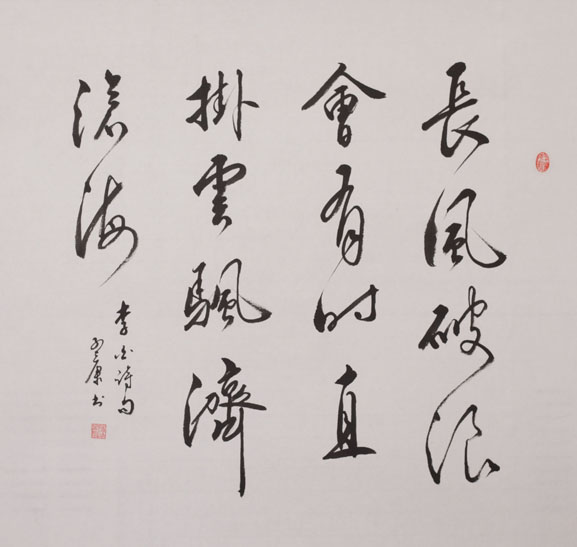 長風破浪
會有时直
掛雲颿濟
滄海
李白詩句
康书